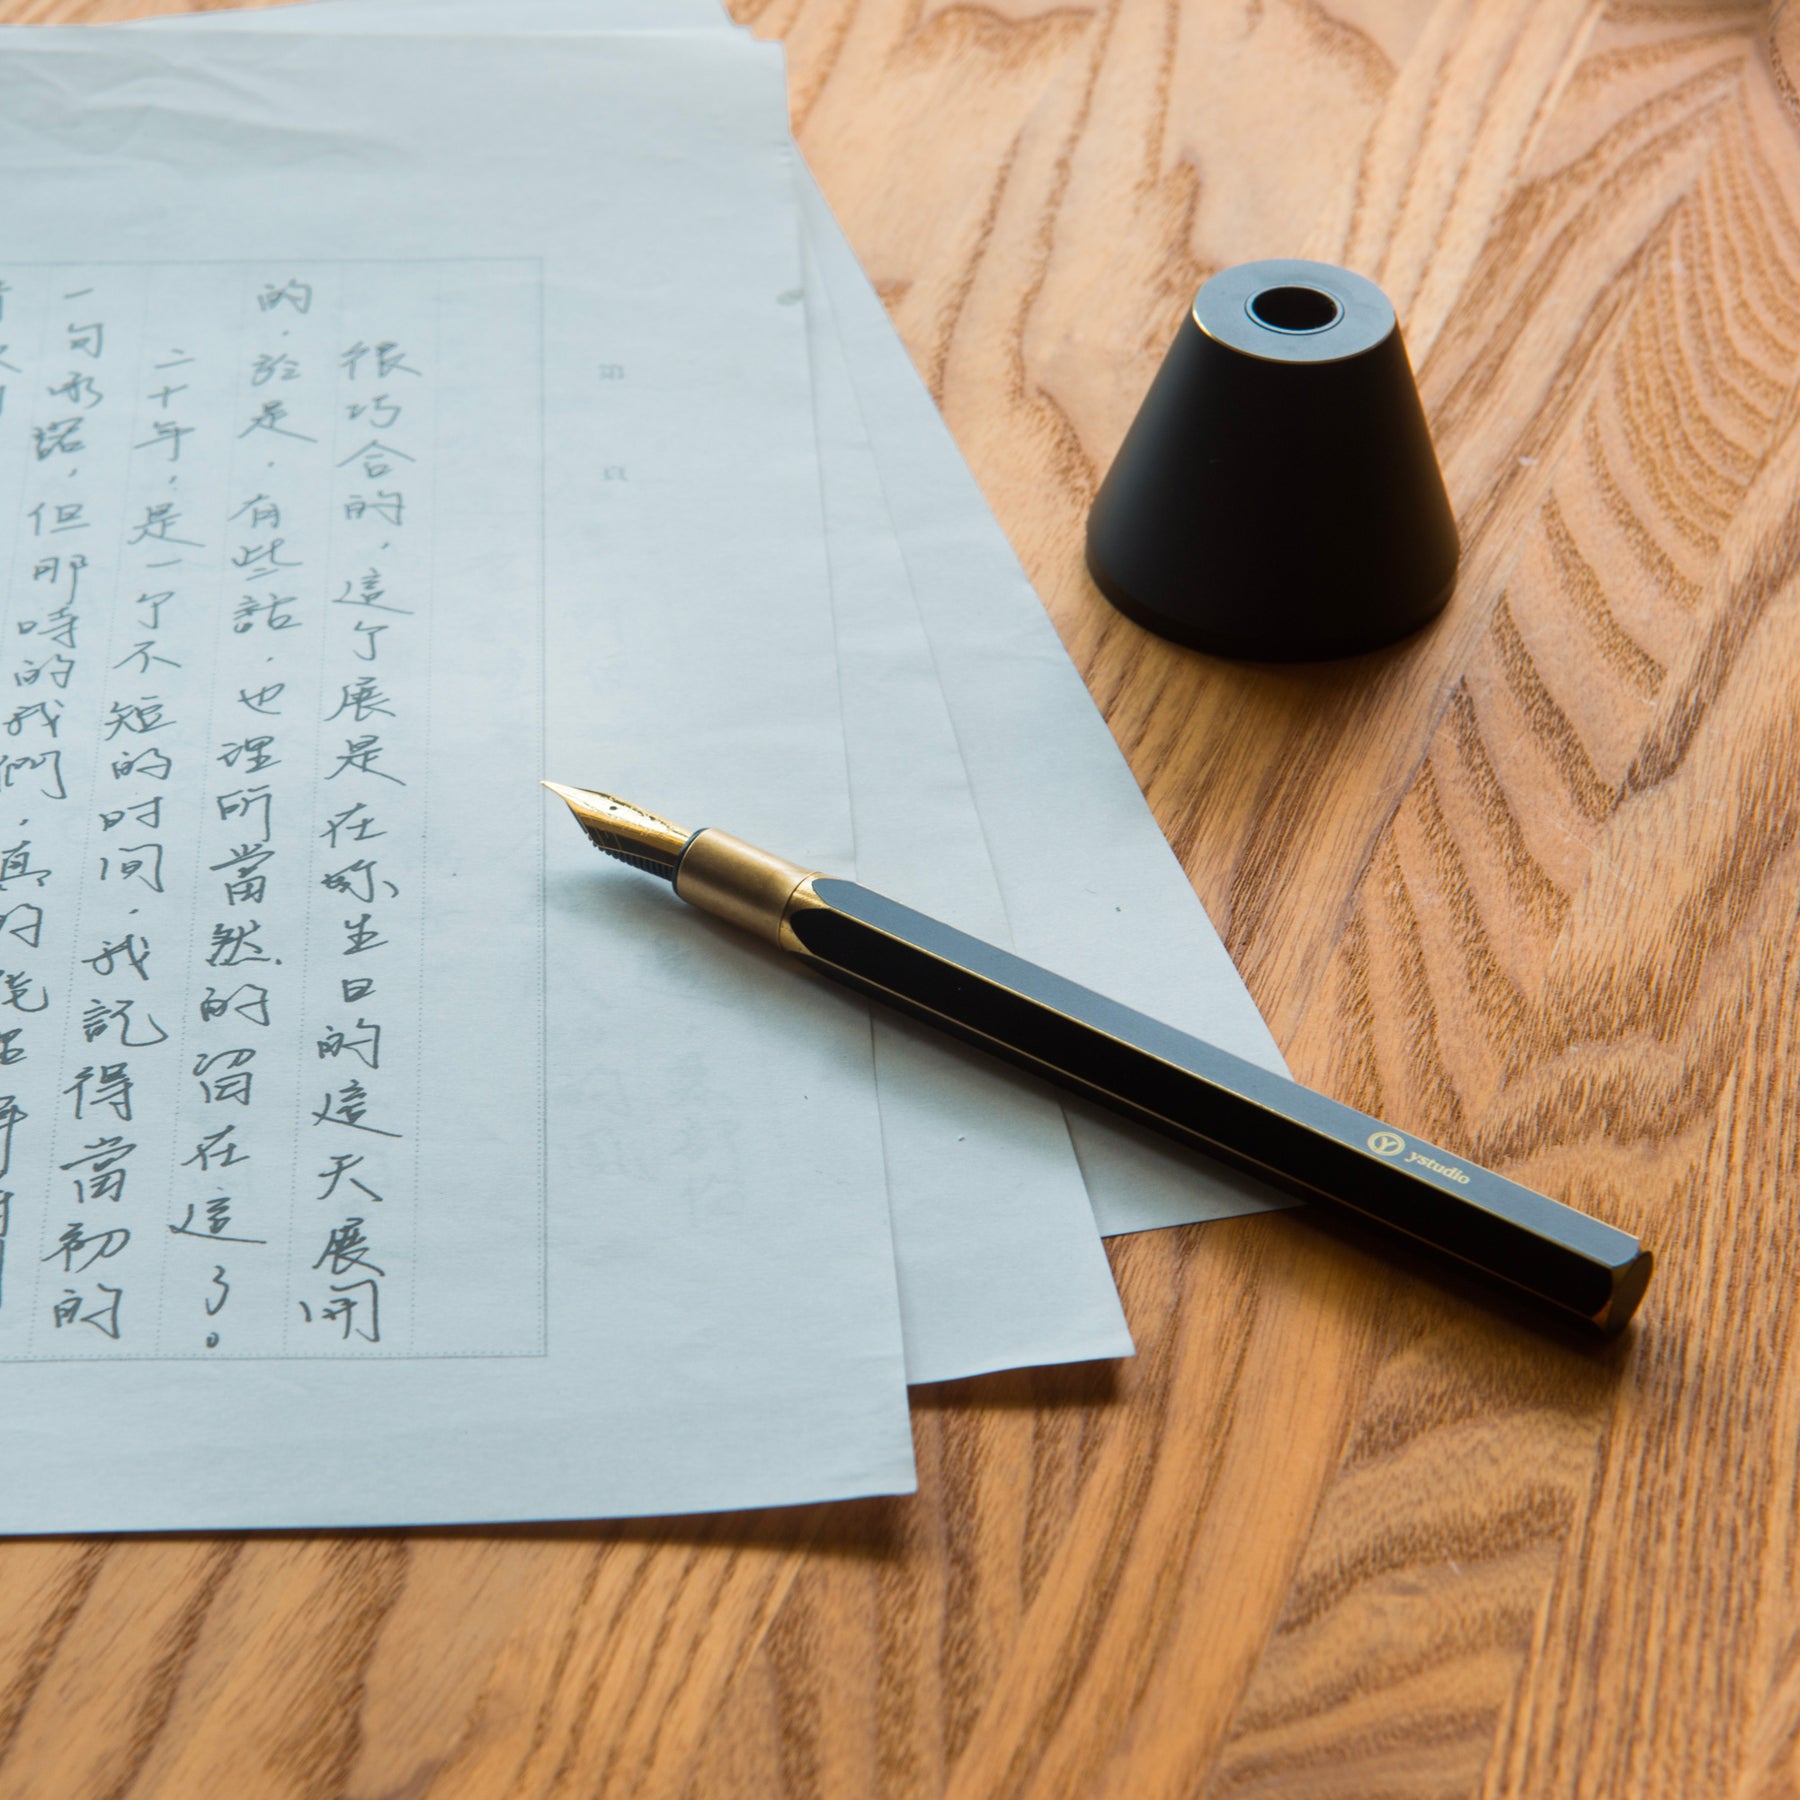 很巧合的，這个展是在妳生日的這天展開
的．於是．有些話．也理所當然的留在這了。
二十年，是一个不短的时间．我記得當初的
一句承諾，但那時的我們．真的
第
頁
ystudio